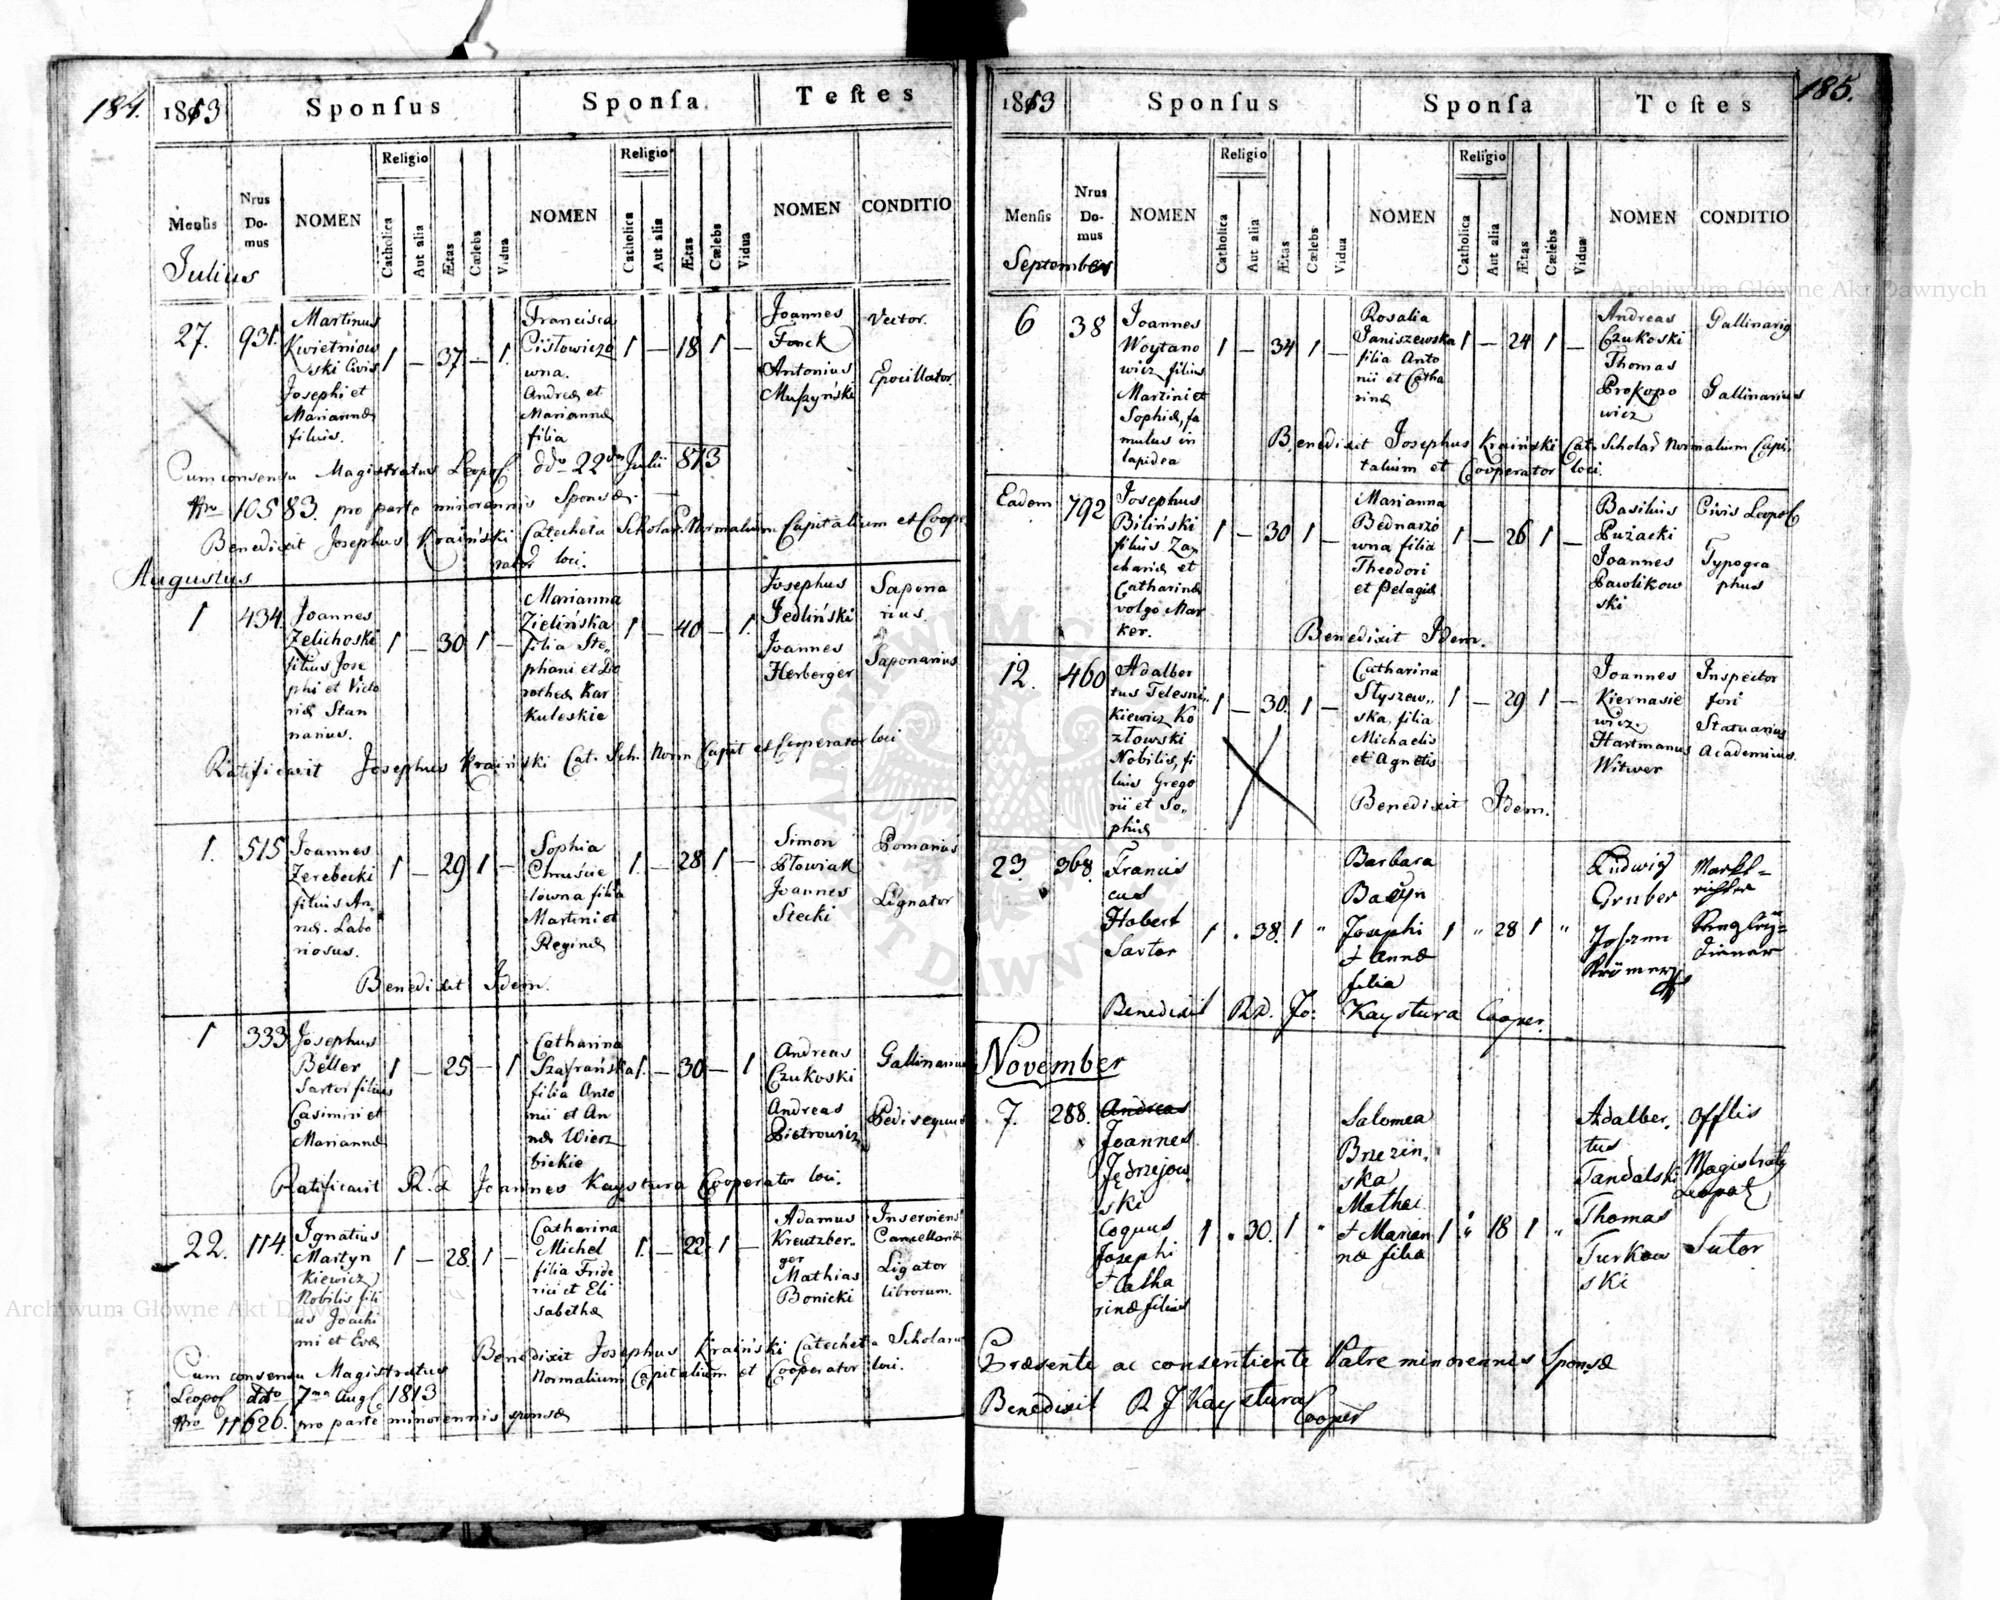 184.
1813
Sponsus
Sponsa.
Testes
Mensis
Nrus Do-mus
NOMEN
Religio
Catholica
Aut alia
Ætas
Cælebs
Vidua
NOMEN
Religio
Catholica
Aut alia
Ætas
Cælebs
Vidua
NOMEN
CONDITIO
Julius
27.
931.
Martinus
Kwietniow
ski Civis
Josephi et
Mariannæ
filius.
1 — 37 — 1.
Francisca
Cisłowiczo
wna.
Andreæ et
Mariannæ
filia
1 — 18 1 —
Joannes
Fonck
Antonius
Muszyński
Vector.
Epocillator.
Cum consensu Magistratus Leopol. ddo 22da Julii 813
Nro 10583. pro parte minorennis Sponsæ.
Benedixit Josephus Kraiński Catecheta Scholar. Normalium Capitalium et Coope
rator loci.
Augustus
1
434.
Joannes
Zelichoski
filius Jose
phi et Victo
riæ Stan
narius.
1 — 30 1 —
Marianna
Zielińska
filia Ste„
phani et Do
rotheæ Kar
kuleskie
1 — 40 — 1.
Josephus
Jedliński
Joannes
Herberger
Sapona
rius.
Saponarius
Ratificavit Josephus Kraiński Cat. Sch. Norm Capit et Cooperator loci
1.
515
Joannes
Zerebecki
filius An„
næ. Labo
riosus.
1 — 29 1 —
Sophia
Chruście
lowna filia
Martini et
Reginæ
1. — 28 1. —
Simon
Płowiak
Joannes
Stecki
Pomarius
Lignator
Benedixit Idem.
1
333
Josephus
Beller
Sartor filius
Casimiri et
Mariannæ
1 — 25 — 1
Catharina
Szafrańska
filia Anto
nii et An
næ Wierz
bickie
1. — 30 — 1
Andreas
Czukoski
Andreas
Pietrowicz
Gallinarius
Pedisequus
Ratificavit R. d Joannes Kaystura Cooperator loci.
22.
114.
Ignatius
Martyn
kiewicz
Nobilis fili
us Joachi
mi et Evæ
1 — 28. 1 —
Catharina
Michel
filia Fride
rici et Eli
sabethæ
1. — 22. 1 —
Adamus
Kreutzber„
ger
Mathias
Bonicki
Inserviens
Cancellariæ
Ligator
librorum.
Benedixit Josephus Kraiński Catecheta Scholarum
Normalium Capitalium et Cooperator loci.
Cum consensu Magistratus
Leopol ddto 7ma Aug. 1813
Nro 11626. pro parte minorennis sponsæ
185.
1813
Sponsus
Sponsa
Testes
Mensis
Nrus Do-mus
NOMEN
Religio
Catholica
Aut alia
Ætas
Cælebs
Vidua
NOMEN
Religio
Catholica
Aut alia
Ætas
Cælebs
Vidua
NOMEN
CONDITIO
September
6
38
Joannes
Woytano
wicz filius
Martini et
Sophiæ, fa
mulus in
lapidea
1 — 34 1 —
Rosalia
Janiszewska
filia Anto
nii et Catha
rinæ
1 — 24 1 —
Andreas
Czukoski
Thomas
Prokopo
wicz
Gallinarius
Gallinarius
Benedixit Josephus Kraiński Cat. Scholar Normalium Capi,
talium et Cooperator loci.
Eadem
792
Josephus
Biliński
filius Za,
chariæ et
Catharinæ
volgo Mar
ker.
1 — 30 1 —
Marianna
Bednarzo
wna filia
Theodori
et Pelagiæ
1 — 26 1 —
Basilius
Puzacki
Joannes
Pawlikow
ski
Civis Leopol
Typogra
phus
Benedixit Idem.
12.
460
Adalber
tus Telesni„
kiewicz Ko
złowski
Nobilis, fi
lius Grego
rii et So„
phiæ
1 — 30. 1 —
Catharina
Styszew„
ska, filia
Michaelis
et Agnetis
1 — 29 1 —
Joannes
Kiernasie
wicz.
Hartmanus
Witwer
Inspector
fori
Statuarius
Academicus.
Benedixit Idem.
23.
368.
Francis
cus
Habert
Sartor
1 „ 38. 1 „
Barbara
Josephi
et Annæ
filia
1 „ 28 1 „
Ludwig
Gruber
Johann
Krömer
Markt=
richter
Kanzley=
diener
Benedixit Rd. Jo: Kaystura Cooper.
November
7.
288.
Andreas
Joannes
Jędrzejow
ski
Coquus
Josephi
et Catha
rinæ filius
1 „ 30. 1 „
Salomea
Brzezin„
ska
Mathei
et Marian
næ filia
1 „ 18 1 „
Adalber„
tus
Tandalski
Thomas
Turkow
ski
Offlis
Magistraty
Leopol
Sutor
Præsente ac consentiente Patre minorennis Sponsæ
Benedixit R J Kaystura
Cooper
Archiwum Główne Akt Dawnych
Archiwum Główne Akt Dawnych